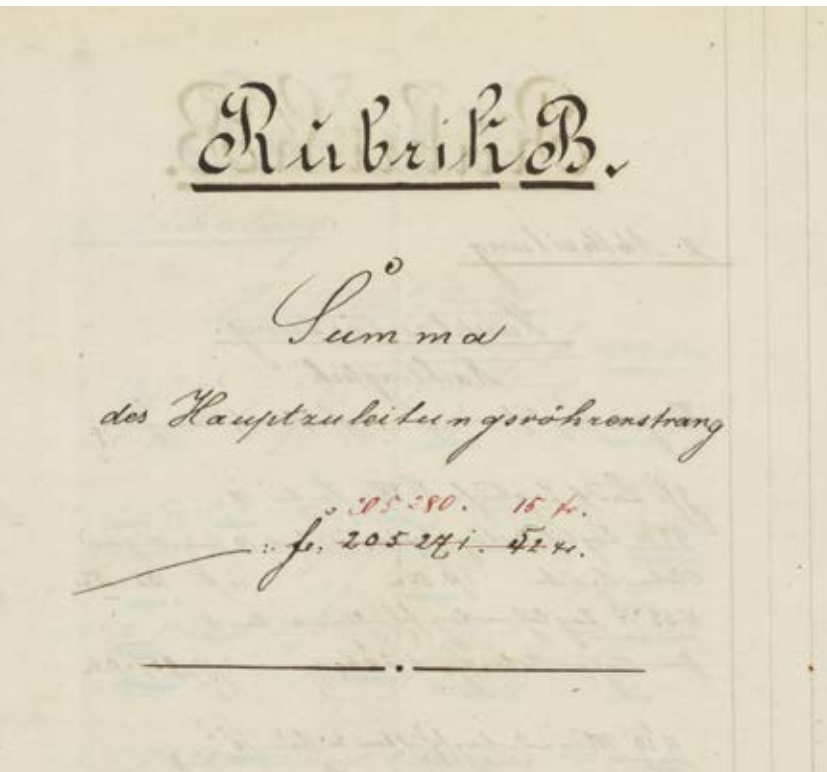 Rubrik B.
Summa
des Hauptzuleitungsröhrenstrang
205 280. 15 kr.
: fl: 205 271. 52 kr.